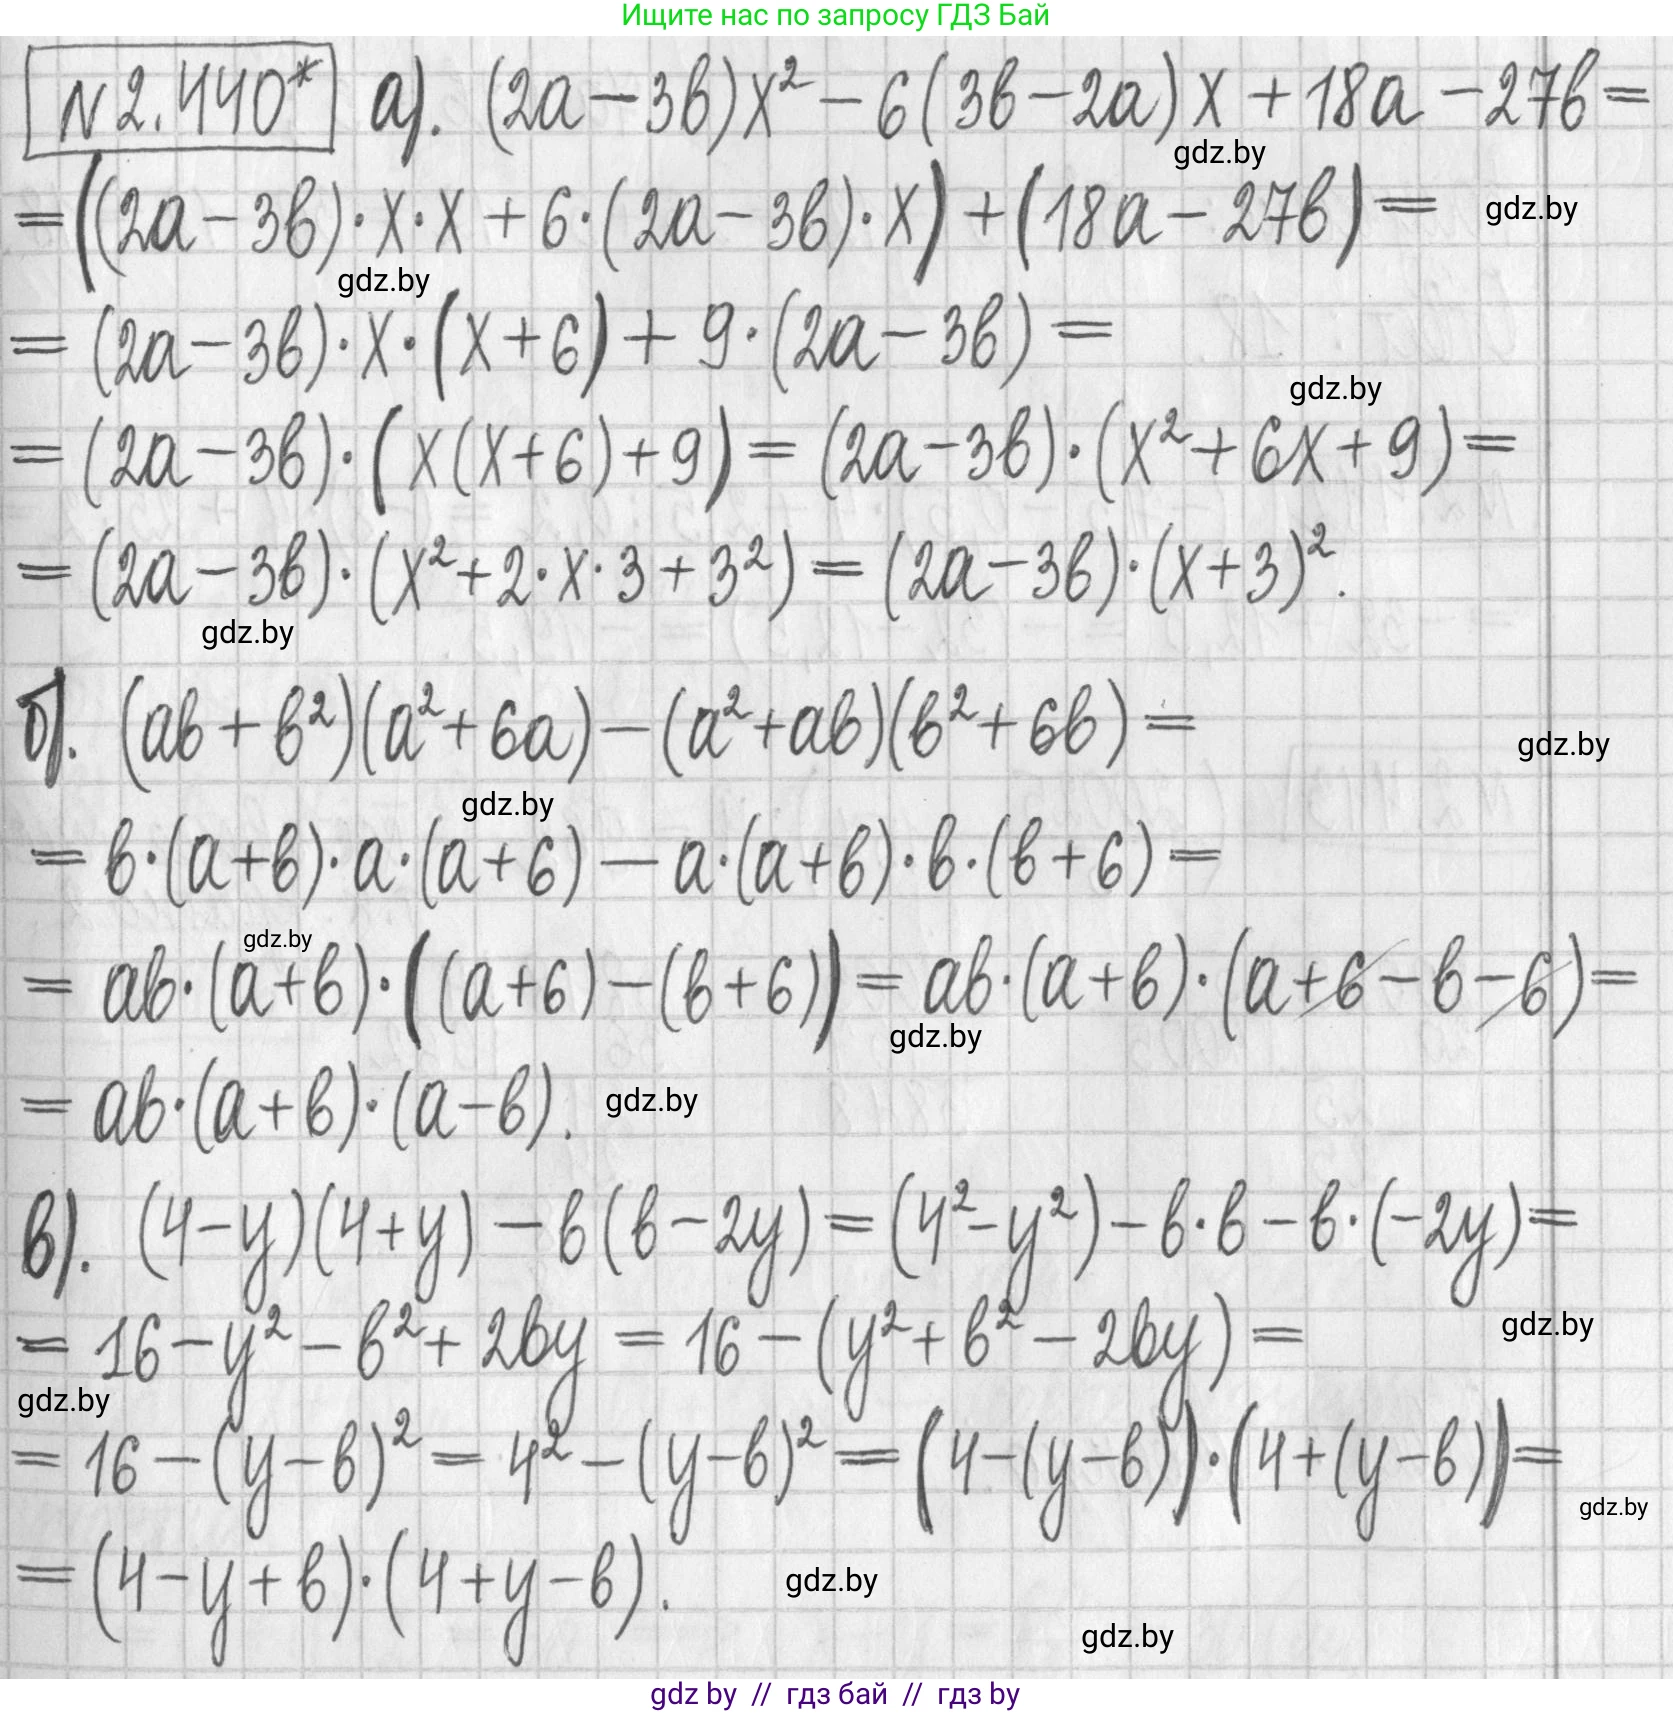 Ищите нас по запросу ГДЗ Бай
N 2.440* а). (2a − 3b)x² − 6(3b − 2a)x + 18a − 27b =
gdz.by
= ((2a − 3b)·x·x + 6·(2a − 3b)·x) + (18a − 27b) =
gdz.by
gdz.by
= (2a − 3b)·x·(x + 6) + 9·(2a − 3b) =
gdz.by
= (2a − 3b)·(x(x + 6) + 9) = (2a − 3b)·(x² + 6x + 9) =
= (2a − 3b)·(x² + 2·x·3 + 3²) = (2a − 3b)·(x + 3)².
gdz.by
б). (ab + b²)(a² + 6a) − (a² + ab)(b² + 6b) =
gdz.by
gdz.by
= b·(a + b)·a·(a + 6) − a·(a + b)·b·(b + 6) =
gdz.by
= ab·(a + b)·((a + 6) − (b + 6)) = ab·(a + b)·(a + 6 − b − 6) =
gdz.by
= ab·(a + b)·(a − b).
gdz.by
в). (4 − y)(4 + y) − b(b − 2y) = (4² − y²) − b·b − b·(−2y) =
= 16 − y² − b² + 2by = 16 − (y² + b² − 2by) =
gdz.by
gdz.by
= 16 − (y − b)² = 4² − (y − b)² = (4 − (y − b))·(4 + (y − b)) =
gdz.by
= (4 − y + b)·(4 + y − b).
gdz.by
gdz.by
gdz by // гдз бай // гдз by